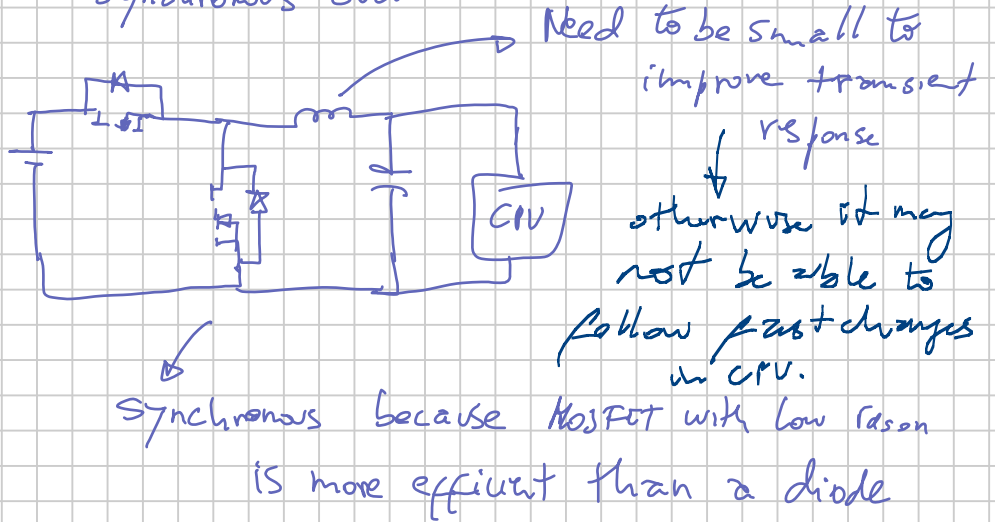 Synchronous
Need to be small to
improve transient
response
CPU
otherwise it may
not be able to
follow fast changes
in CPU.
Synchronous because MOSFET with low rdson
is more efficient than a diode